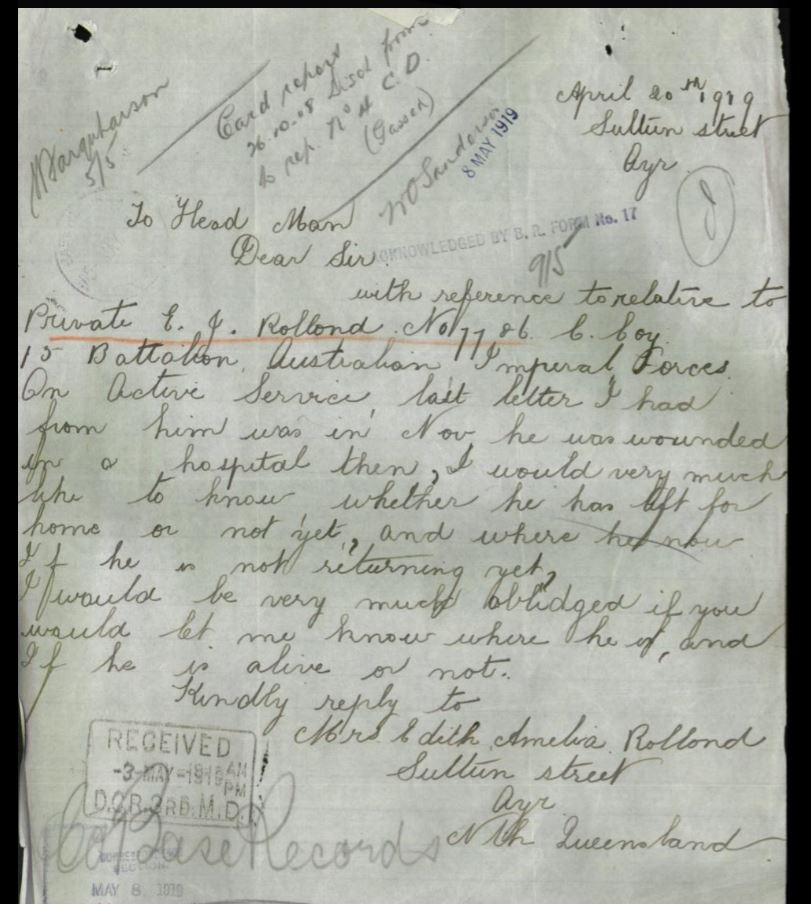 Card report
26.10.18 Disch from
to rep. No 4 C.D.
(Gassed)
5/5
8 MAY 1919
April 20th 1919
Suttun street
Ayr
To Head Man
Dear Sir
ACKNOWLEDGED BY B. R. FORM No. 17
9/5
with reference to relative to
Private E. J. Rollond. No 7786. C. Coy
15 Battalion, Australian Imperal Forces.
On Active Service last letter I had
from him was in Nov he was wounded
in a hospital then, I would very much
like to know whether he has left for
home or not yet, and where he now
If he is not returning yet,
I would be very much oblidged if you
would let me know where he is, and
If he is alive or not.
Kindly reply to
Mrs Edith Amelia Rollond
Suttun street
Ayr
Nth Queensland
RECEIVED
-3-MAY-1919 AM
PM
D.O.R. 3RD. M.D.
Base Records
MAY 8 1919